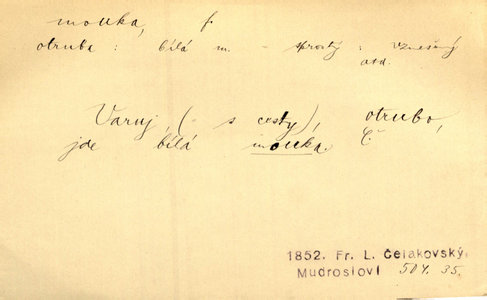 mouka, f.
otruba : bílá m. - sprostý : vznešený
atd.
Varuj, (- s cesty), otrubo,
jde bílá mouka. Č.
1852. Fr. L. Čelakovský,
Mudrosloví 504. 35.